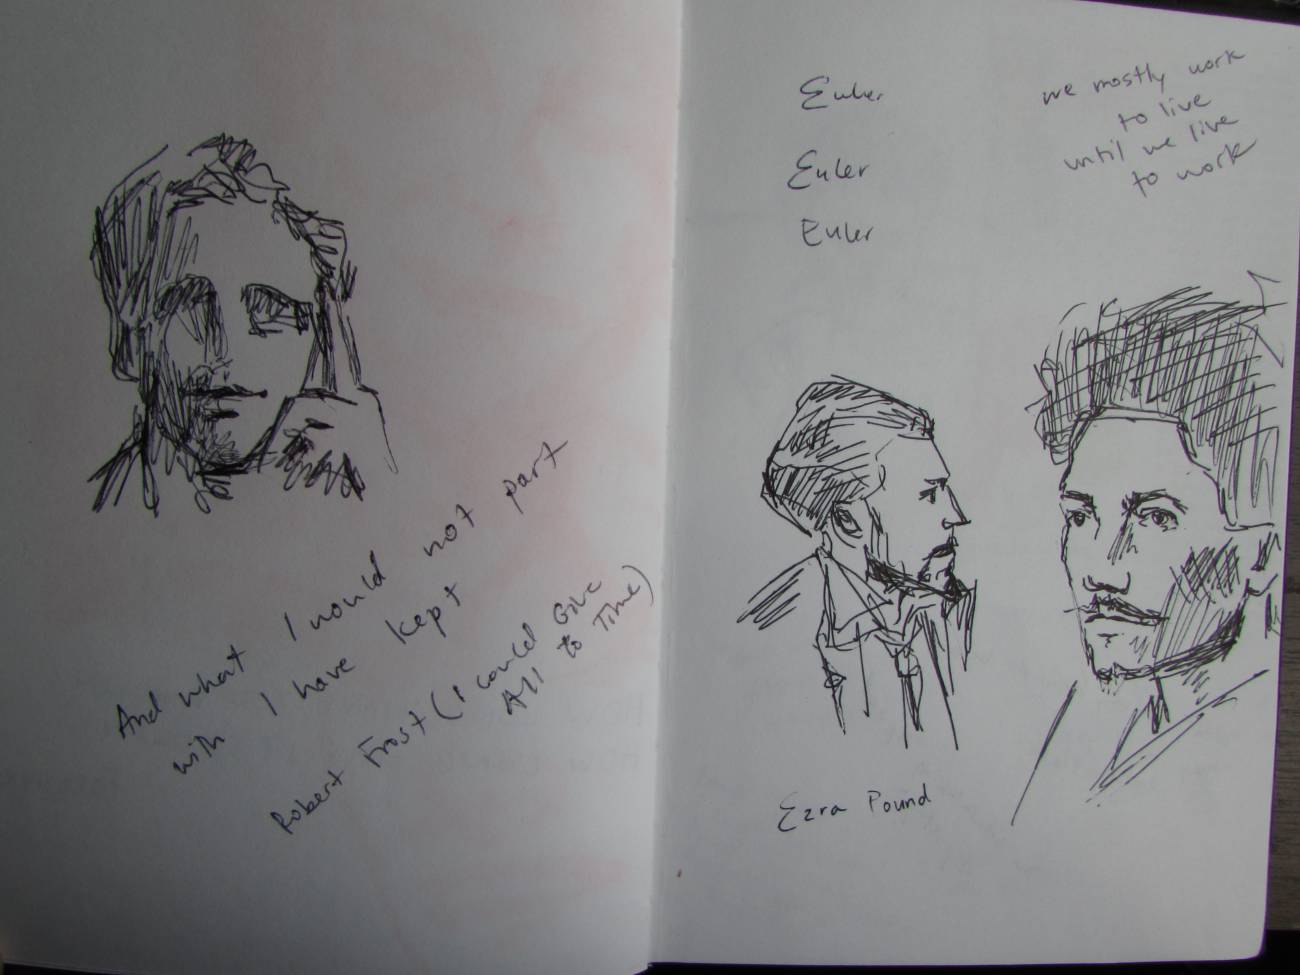 And what I would not part
with I have kept
Robert Frost (I could Give
All to Time)
Euler
Euler
Euler
we mostly work
to live
until we live
to work
Ezra Pound